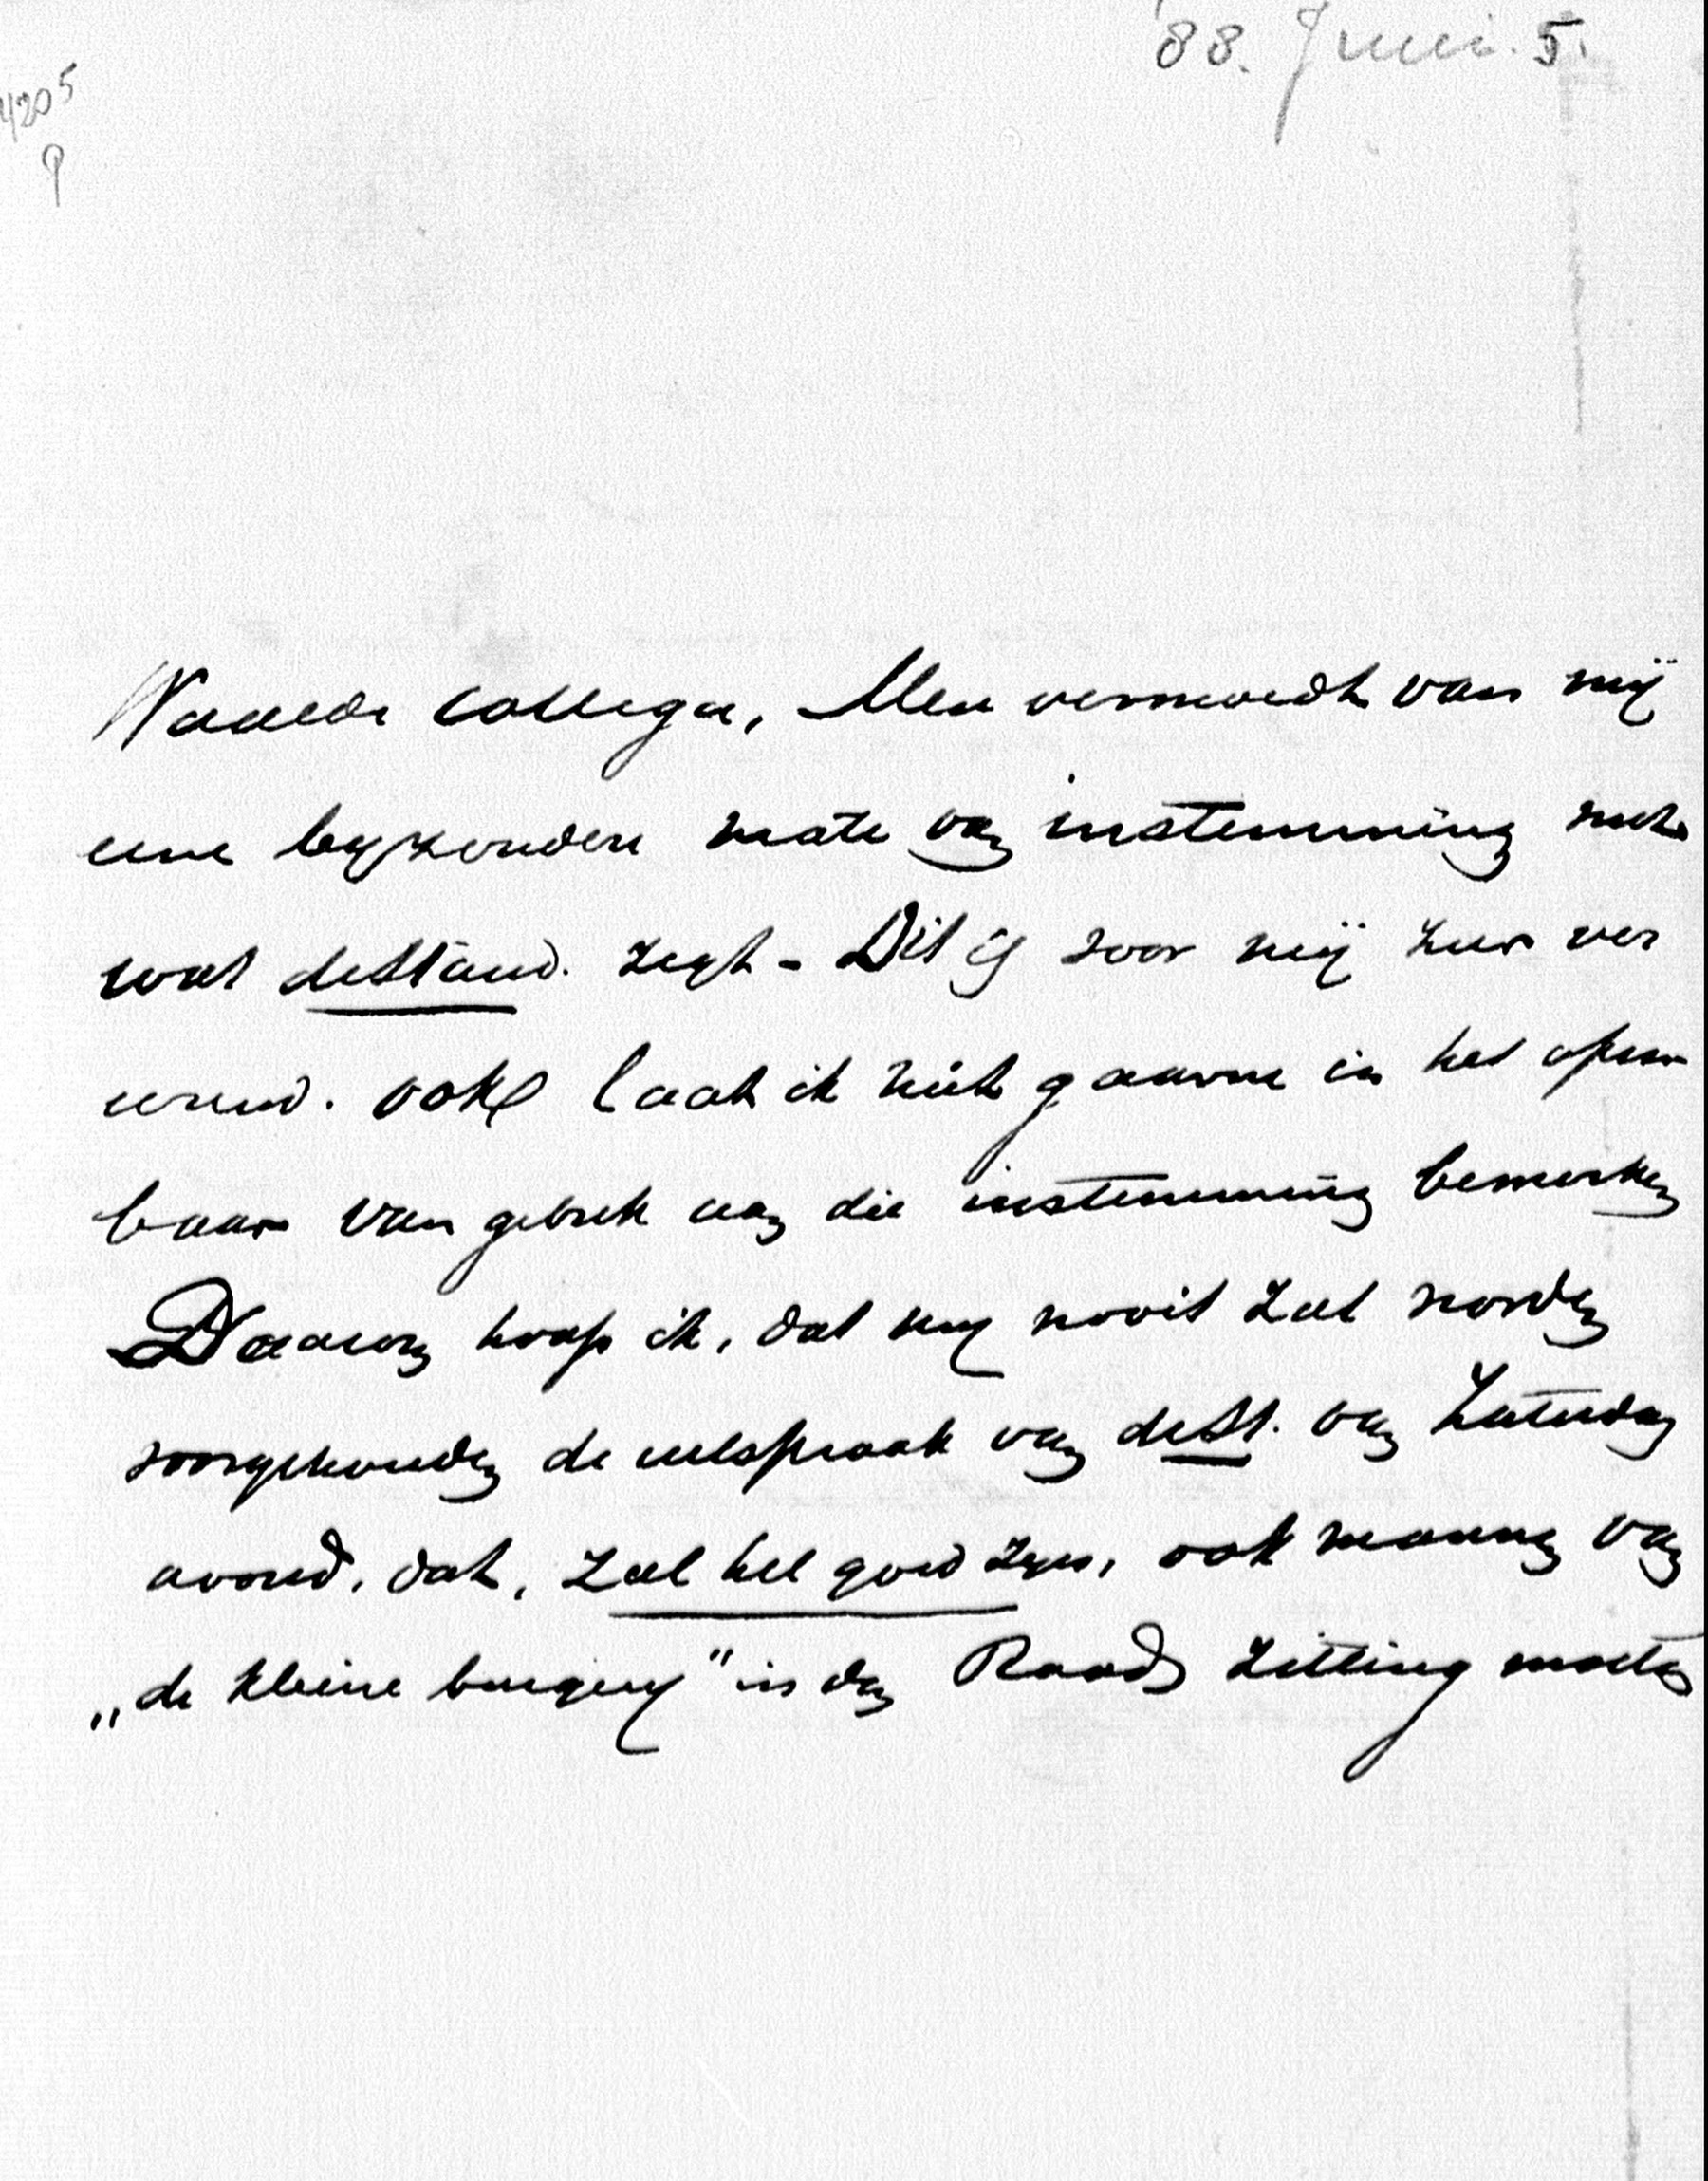 '88. Juni. 5.
4205
Waarde Collega, Men vermoedt van mij
eene byzondere mate van instemming met
wat de Stand. zegt - Dit is voor mij zeer ver
eerend. ook laat ik niet gaarne in het open
baar van gebrek aan die instemming bemerken
Daarom hoop ik, dat my nooit zal worden
voorgehouden de uitspraak van de St. van Zaturdag
avond, dat, zal het goed zyn, ook mannen van
„de kleine burgery" in den Raad zitting moeten